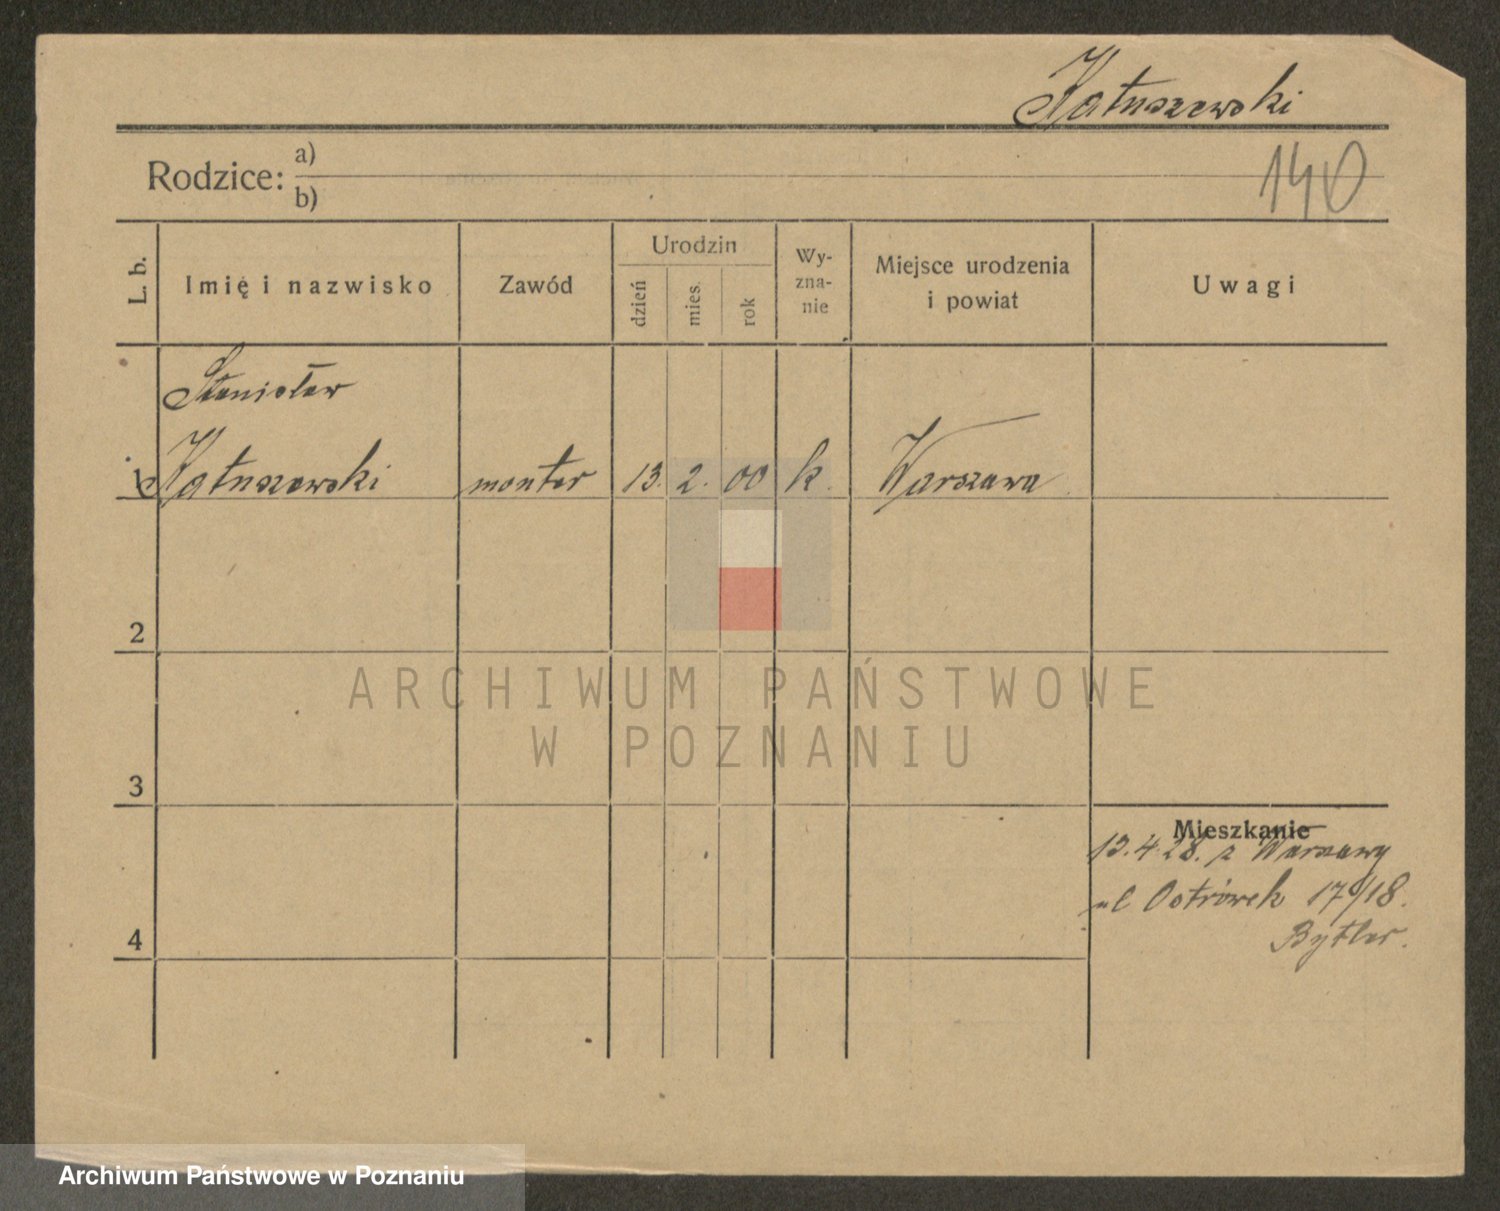 Kałuszewski
Rodzice: a)
b)
140
L. b.
Imię i nazwisko
Zawód
Urodzin
dzień
mies.
rok
Wy-
zna-
nie
Miejsce urodzenia
i powiat
Uwagi
Stanisław
1 Kałuszewski monter 13. 2. 00 k. Warszawa
2
ARCHIWUM PAŃSTWOWE
W POZNANIU
3
Mieszkanie
13.4.28. z Warszawy
ul Ostrówek 17/18.
4
Archiwum Państwowe w Poznaniu